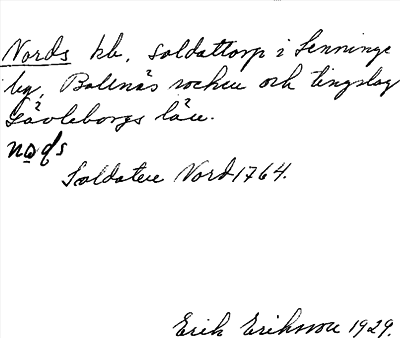 Nords kb, soldattorp i Lenninge
by, Bollnäs socken och tingslag
Gävleborgs län.
Soldaten Nord 1764.
Erik Eriksson 1929.